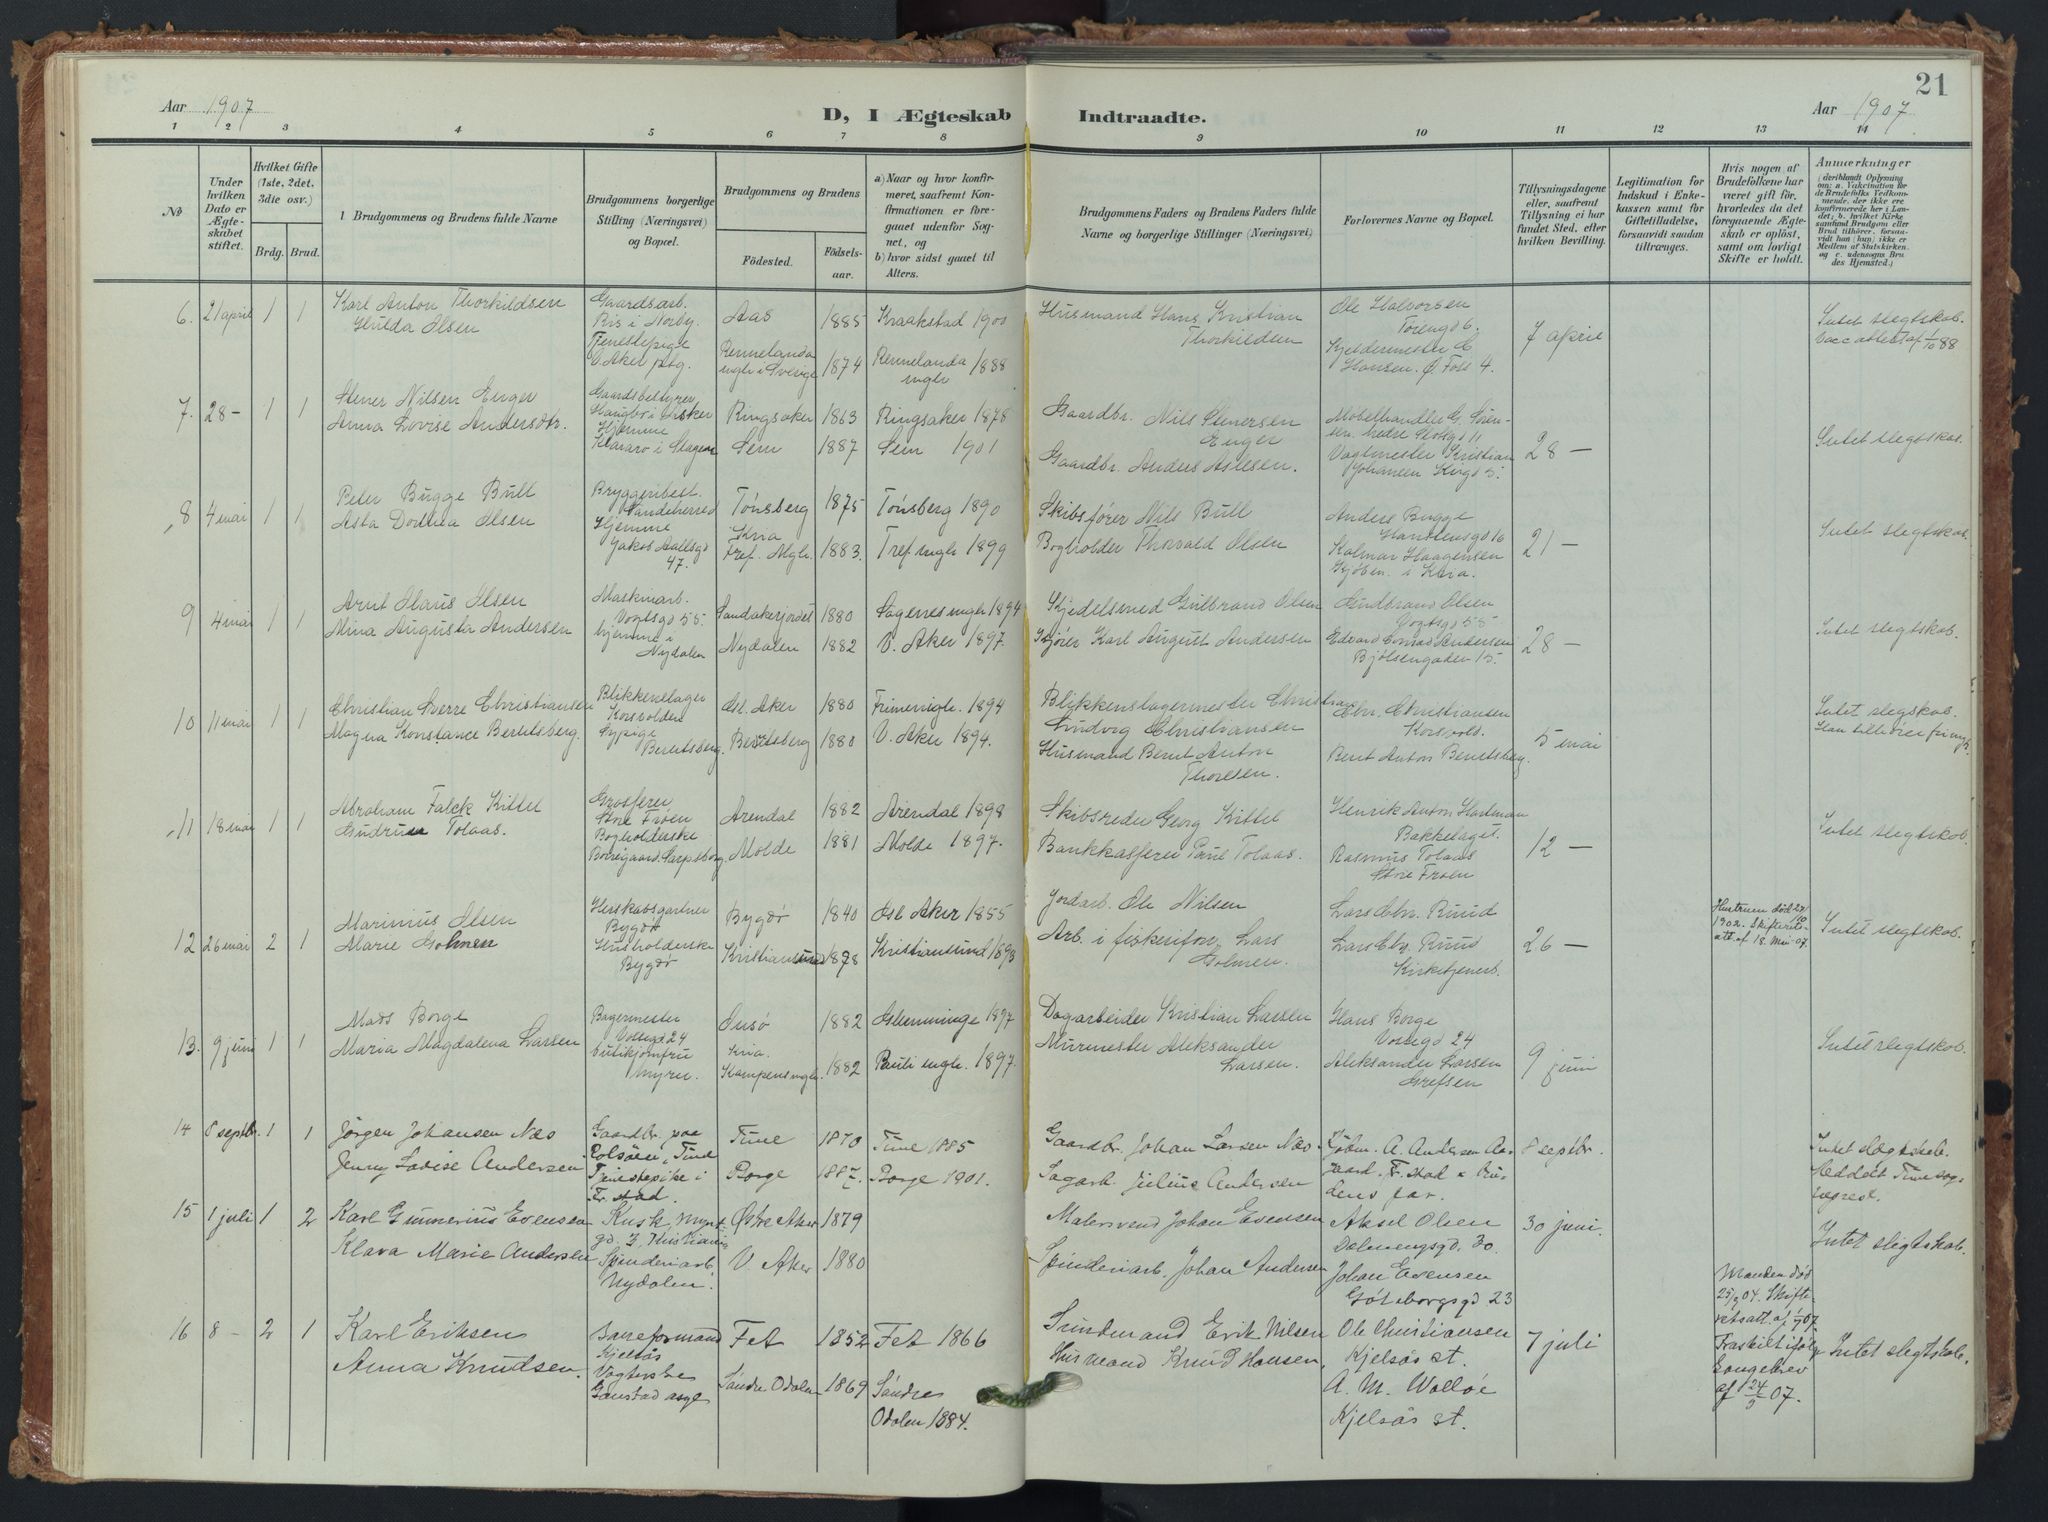 21
Aar 1907
D, I Ægteskab Indtraadte.
Aar 1907.
1 2 3 4 5 6 7 8 9 10 11 12 13 14
No
Under hvilken Dato er Ægteskabet stiftet.
Hvilket Gifte (1ste, 2det, 3die osv.)
Brdg. Brud.
1 Brudgommens og Brudens fulde Navne
Brudgommens borgerlige Stilling (Næringsvei) og Bopæl.
Brudgommens og Brudens
Fødested. Fødselsaar.
a) Naar og hvor konfirmeret, saafremt Konfirmationen er foregaaet udenfor Sognet, og
b) hvor sidst gaaet til Alters.
Brudgommens Faders og Brudens Faders fulde Navne og borgerlige Stillinger (Næringsvei)
Forlovernes Navne og Bopæl.
Tillysningsdagene eller, saafremt Tillysning ei har fundet Sted, efter hvilken Bevilling.
Legitimation for Indskud i Enkekassen samt for Giftetilladelse, forsaavidt saadan tiltrænges.
Hvis nogen af Brudefolkene har været gift før, hvorledes da det foregaaende Ægteskab er opløst, samt om lovligt Skifte er holdt.
Anmærkninger
(deriblandt Oplysning om: a. Vakcination for de Brudefolks Vedkommende, der ikke ere konfirmerede her i Landet; b. hvilket Kirkesamfund Brudgom eller Brud tilhører, forsaavidt han (hun) ikke er Medlem af Statskirken, og c. udensogns Brudes Hjemsted.)
6. 21 april 1 1 Karl Anton Thorkildsen
Hulda Olsen
Gaardsarb.
Ris i Norby.
Tjenestepige
V. Aker pstg.
Aas 1885 Kraakstad 1900
Rennelanda mgh i Sverige 1874 Rennelanda mgh 1888
Husmand Hans Kristian
Thorkildsen
Ole Halvorsen
Tøiengd 6.
Kjeldermester
Hansen. Ø. Foss 4.
7 april
Intet slegtskab.
Vacc attest af 1/10 88
7. 28 - 1 1 Stener Nilsen Enger
Anna Lovise Andersdtr.
Gaardsbestyrer
Hjemme
i Slagen
Ringsaker 1863 Ringsaker 1878
Sem 1887 Sem 1901
Gaardbr. Nils Stenersen
Enger
Gaardbr. Anders Aslesen.
Møbelhandler G. Sørensen
Vogtmester Kristian
Johansen
28 -
Intet slegtskab.
8 4 mai 1 1 Peter Bugge Bull
Asta Dorthea Olsen
Bryggeribest.
Sandeherred
Hjemme
Jakob Aallsgd
47.
Tønsberg 1875 Tønsberg 1890
Kria
Tref. Mgh. 1883. Tref mgh 1899
Skibsfører Nils Bull
Bogholder Thorvald Olsen
Anders Bugge
Kolmar Haagensen
Kjøbm. i Kria.
21 -
Intet slegtskab.
9 4 mai 1 1 Arnt Hans Olsen
Mina Augusta Andersen
Maskinarb.
Vogtsgd 55.
hjemme i
Nydalen
Sandakerjordet 1880 Sagenes mgh 1894
Nydalen 1882 V. Aker 1897.
Kjedelsmed Gulbrand Olsen
Kjører Karl August Andersen
Gulbrand Olsen
Vogtsgd 55
Edvard Konrad Andersen
Bjølsengaden 15.
28 -
Intet slegtskab.
10 11 mai 1 1 Christian Sverre Christiansen
Magna Konstance Berntsberg.
Blikkenslager
Korsvolden
Sypige
Berntsberg
Øst. Aker 1880 Frimenigh. 1894
Berntsberg 1880 V. Aker 1894.
Blikkenslagermester Christian
Ludvig Christiansen
Husmand Bernt Anton
Thoresen.
Chr. Christiansen
Korsvold.
Bernt Anton Berntsberg.
5 mai
Intet slegskab.
Han tilhører frimgh.
11 18 mai 1 1 Abraham Falck Kittel
Gudrun Tolaas.
Grosserer
Store Frøen
Bogholderske
Borregaard. Sarpsborg
Arendal 1882 Arendal 1898
Molde 1881 Molde 1897.
Skibsreder Georg Kittel
Bankkasserer Paul Tolaas.
Henrik Anton Hartman
Bakkelaget.
Rasmus Tolaas
Store Frøen
12 -
Intet slegtskab.
12 26 mai 2 1 Marinius Olsen
Marie Golmen
Herskabsgartner
Bygdø
Husholderske
Bygdø
Bygdø 1840 Øst. Aker 1855
Kristiansund 1878 Kristiansund 1893
Jordarb. Ole Nilsen
Arb. i fiskeriforr. Lars
Golmen.
Lars Chr. Ruud
Lars Chr. Ruud
Kirketjenerb.
26 -
Hustruen død 27/10
1902. Skifteretsatt.
af 18. Mai 07.
Intet slegtskab.
13. 9 juni 1 1 Mads Borge
Maria Magdalena Larsen
Bagermester
Voltsgd 24
butikjomfru
Myren
Onsø 1882 Glemminge 1897
Kria. Kampens mgh. 1882 Pauli mgh. 1897.
Dagarbeider Kristian Larsen
Murmester Aleksander
Larsen.
Hans Borge
24
Aleksander Larsen
Grefsen
9 juni
Intet slegtskab.
14 8 septbr. 1 1 Jørgen Johansen Næs
Jenny Lovise Andersen
Gaardbr. paa
Rolsøen, Tune
Tjenestepike i
Fr.stad.
Tune 1870 Tune 1885
Borge 1887. Borge 1901.
Gaardbr. Johan Larsen Næs
Sagarb. Julius Andersen
Kjøbm. A. Andersen Aagaard.
Fr.stad & Brudens far.
8 septbr.
Intet slegtskab.
Meddelt Tune sogneprest.
15 1 juli 1 2 Karl Gunnerius Evensen
Klara Marie Andersen
Kusk, Myntgd. 3, Kristiania
Spinderiarb
Nydalen.
Østre Aker 1879
V. Aker 1880
Malersvend Johan Evensen
Spinderiarb. Johan Andersen
Aksel Olsen
Dælenengsgd. 30.
Johan Evensen
Gøteborgsgd 23
30 juni.
Manden død
25/9 04. Skifteretsatt. af 1/7 07.
Intet slegtskab.
16 8 - 2 1 Karl Eriksen
Anna Knudsen.
Kjelsås
Vogterske
Gaustad asyl
Fet 1852 Fet 1866
Søndre Odalen 1869 Søndre
Odalen 1884.
Erik Nilsen
Husmand Knud Hansen,
Ole Christiansen
Kjelsås st.
A. M. Walløe
Kjelsås st.
7 juli
Fraskilt ifølge
af 24/5 07.
Intet slegtskab.